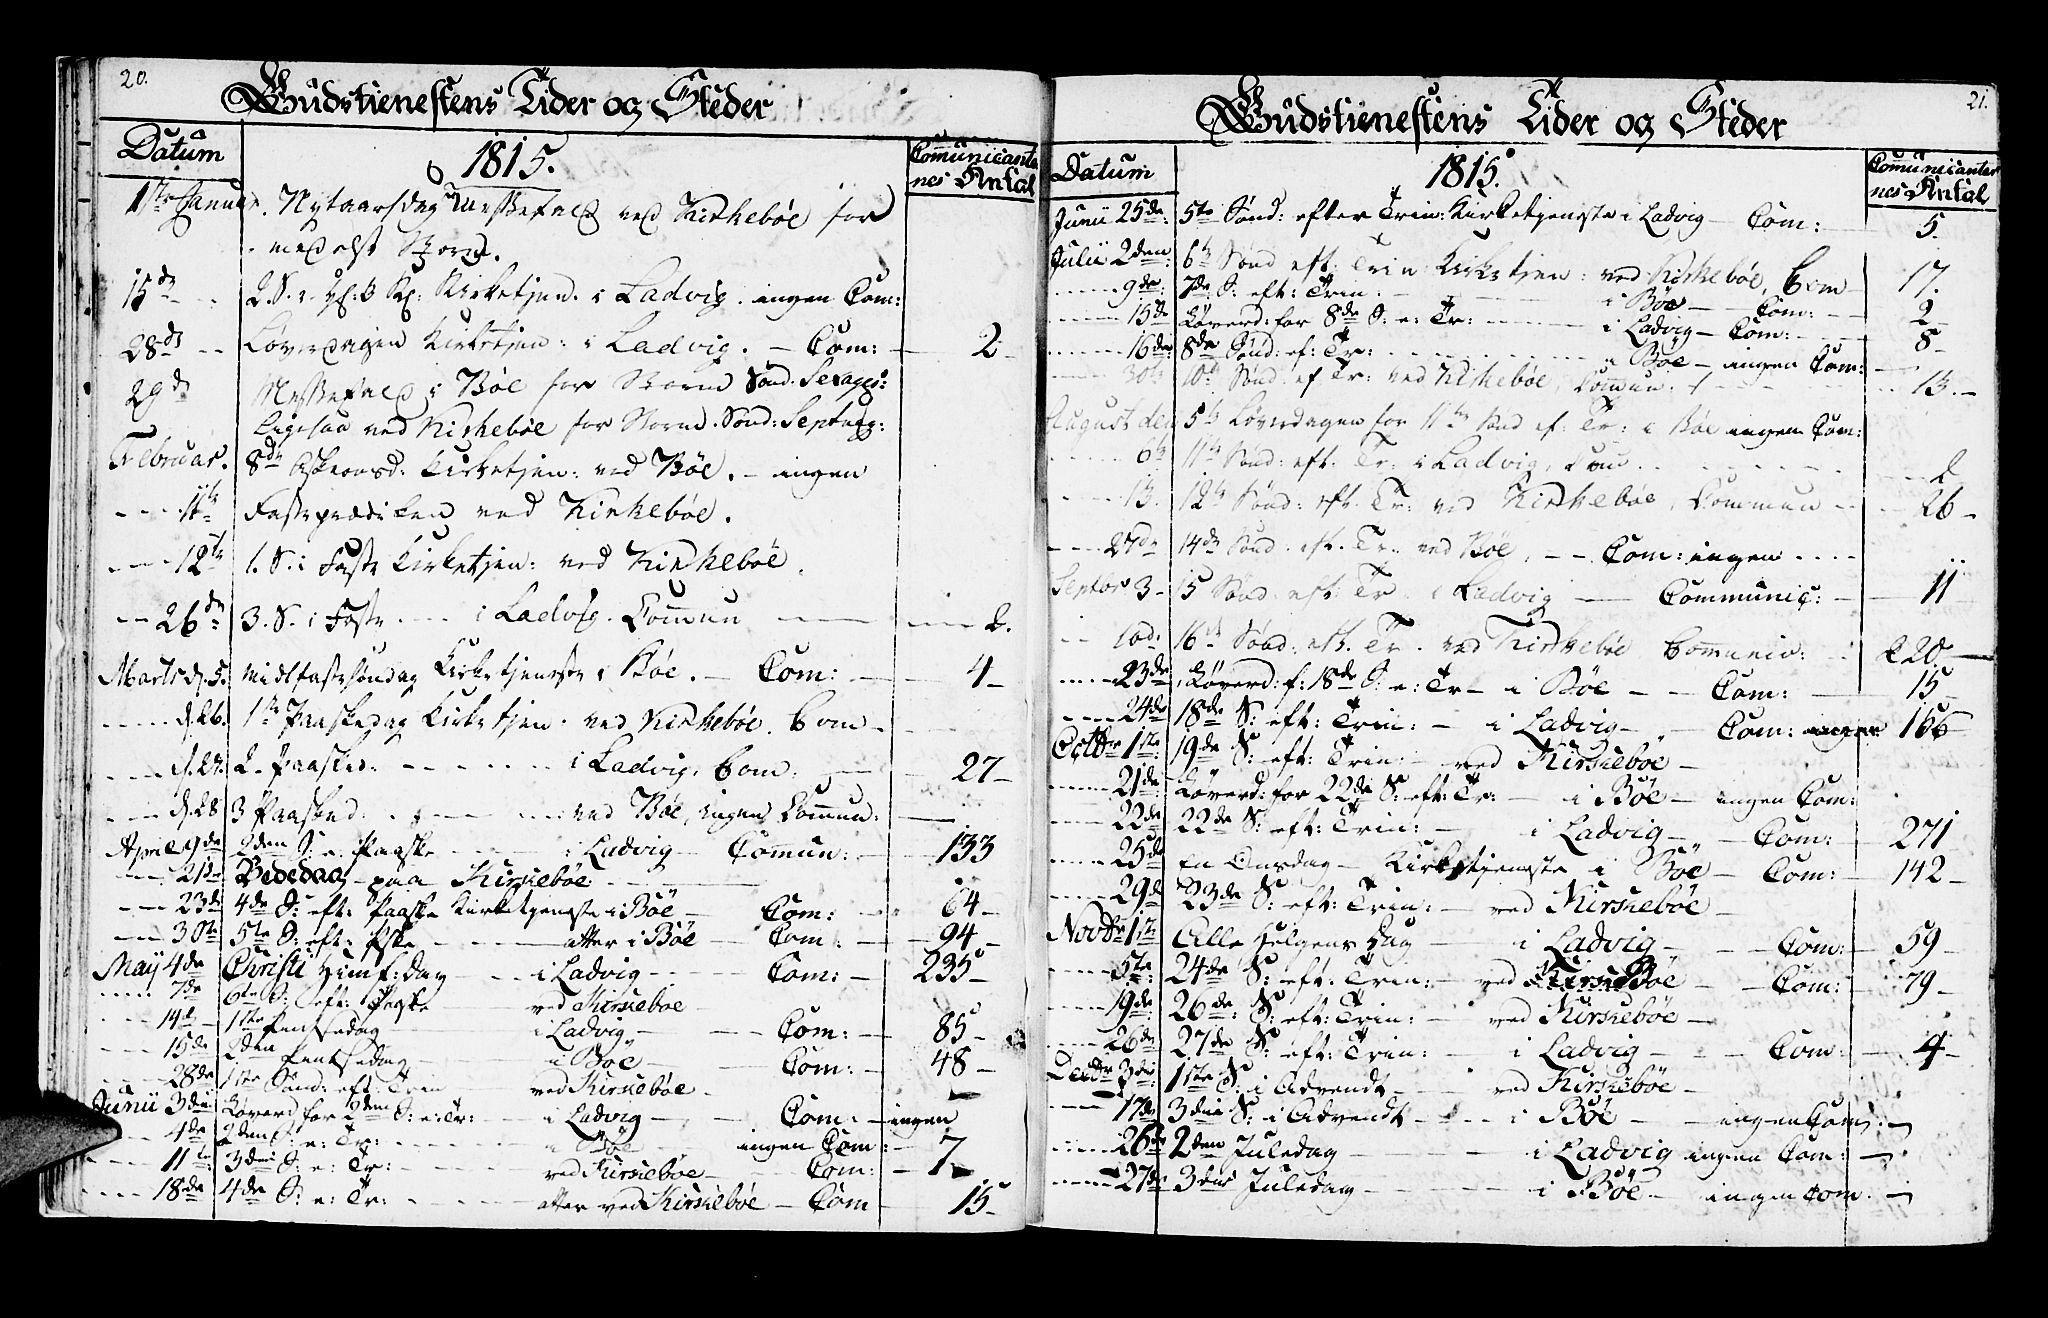 20.
Gudstienestens Tider og Steder
Datum
1815.
Communicanter
nes Antal
1ste Januar. Nytaarsdag Messefald ved Kirkebøe for
medelst Storm.
15de 2. S. e. H. 3 K. Kirketjen. i Ladvig. ingen Com:
28de Løverdagen Kirketjen: i Ladvig. — Com: — 2
29de Messefald i Bøe for Storm Sönd. Sexages:
Ligesaa ved Kirkebøe for Storm. Sönd: Septuag:
Februar. 8de Askeonsd: Kirketjen: ved Bøe. — ingen
11te Fasteprædiken ved Kirkebøe.
12te 1. S. i Faste Kirketjen: ved Kirkebøe.
26de 3. S. i Faste - - - i Ladvig. Commun — 2.
Marts d. 5. Midfastesøndag Kirketjeneste i Bøe. — Com: — 4 —
d. 26. 1ste Paaskedag Kirketjen. ved Kirkebøe. Com —
d. 27. 2. Paasked. - - - i Ladvig. Com: — 27 —
d. 28 3 Paasked. - - - ved Bøe, ingen Commun: —
April 9de 2den S. e. Paaske - - i Ladvig — Commun: — 133
21de Bededag — paa Kirkebøe
23de 4de S: eft: Paaske Kirketjeneste i Böe — Com: — 64 —
30te 5te S: eft: Pske — atter i Böe — Com: — 94 —
Maÿ 4de Christi Himf: dag — i Ladvig — Com: — 235
7de 6te S: eft: Paske ved Kirkeböe
14de 1ste Pentsedag i Ladvig — Com: — 85 —
15de 2den Pentsedag i Böe — Com: — 48 —
28de 1ste Sönd: eft: Trin ved Kirkeböe —
Junii 3die Löverd for 2den S: e: Tr: i Ladvig — Com: — ingen
4de 2den S: e: Tr: i Böe ingen Com: —
11te 3die S: e: Tr: — ved Kirkeböe — Com: — 7 —
18de 4de S: e: Tr: — atter ved Kirkeböe — Com — 15 —
21.
Gudstienestens Tider og Steder
Datum
1815.
Communicanter
nes Antal
Junii 25de: 5te Sönd: efter Trin: Kirketjeneste i Ladvig — Com: 5
Julii 2den: 6te Sönd eft: Trin: Kirketjen: ved Kirkebøe, Com — 17.
9de: 7de S: eft: Trin: — i Böe — Com: — 2 —
15de Löverd: for 8de S: e: Tr: — i Ladvig — Com: — 8 —
16de: 8de Sönd: ef: Tr: — i Böe — ingen Com: —
30te 10de Sönd. ef. Tr: ved Kirkebøe, Commun. — 13. —
August den 5te Løverdagen for 11te Sönd ef: Tr: i Bøe ingen Com:
6te 11te Sönd: eft. Tr: i Ladvig, Com — 2
13. 12te Sönd: eft. Tr: ved Kirkebøe, Commun — 26 —
27de 14de Sönd. eft. Tr: ved Bøe, — Com: ingen
Septbr 3 — 15 Sönd: eft: Tr. i Ladvig — Communic: — 11
10d: 16de Sönd: eft. Tr. ved Kirkebøe Communic: 220.
23de Löverd: f: 18de S: e: Tr — i Böe — Com: — 15 —
24de 18de S: eft: Trin: — i Ladvig — Com: 156
Octbr 1ste 19de S: eft: Trin: — ved Kirkeböe —
21de: Löverd: for 22de S: eft: Tr: — i Böe — ingen Com:
22de 22de S: eft: Trin: — i Ladvig — Com: — 271
25de en Onsdag — Kirketjeneste i Böe — Com: — 142 —
29de 23de S: eft: Trin: — ved Kirkeböe —
Novbr 1ste Alle Helgens Dag — i Ladvig — Com: — 59 —
5te: 24de S: eft: Trin: — ved Kirkeböe — Com: — 79 —
19de 26de S: eft: Trin: — ved Kirkeböe —
26de 27de S: eft: Trin: — i Ladvig — Com: — 4 —
Decbr 3die 1ste S: i Advendt — ved Kirkeböe —
17de 3die S: i Advendt — i Böe — ingen Com: —
26de 2den Juledag — i Ladvig ingen Com: —
27de 3die Juledag — i Böe — ingen Com: —